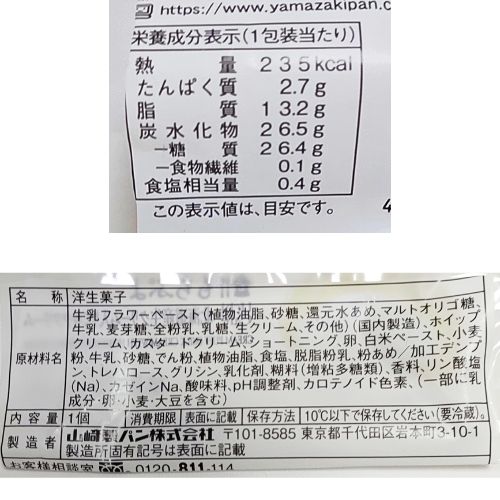 https://www.yamazakipan.c
栄養成分表示(1包装当たり)
熱量 235kcal
たんぱく質 2.7g
脂質 13.2g
炭水化物 26.5g
－糖質 26.4g
－食物繊維 0.1g
食塩相当量 0.4g
この表示値は、目安です。 4
名称 洋生菓子
原材料名 牛乳フラワーペースト(植物油脂、砂糖、還元水あめ、マルトオリゴ糖、
牛乳、麦芽糖、全粉乳、乳糖、生クリーム、その他)(国内製造)、ホイップ
クリーム、カスタードクリーム、ショートニング、卵、白米ペースト、小麦
粉、牛乳、砂糖、でん粉、植物油脂、食塩、脱脂粉乳、粉あめ/加工デンプ
ン、トレハロース、グリシン、乳化剤、糊料(増粘多糖類)、香料、リン酸塩
(Na)、カゼインNa、酸味料、pH調整剤、カロテノイド色素、(一部に乳
成分・卵・小麦・大豆を含む)
内容量 1個 消費期限 表面に記載 保存方法 10℃以下で保存してください(要冷蔵)。
製造者 山崎製パン株式会社 〒101-8585 東京都千代田区岩本町3-10-1
製造所固有記号は表面に記載
お客様相談室 0120-811-114